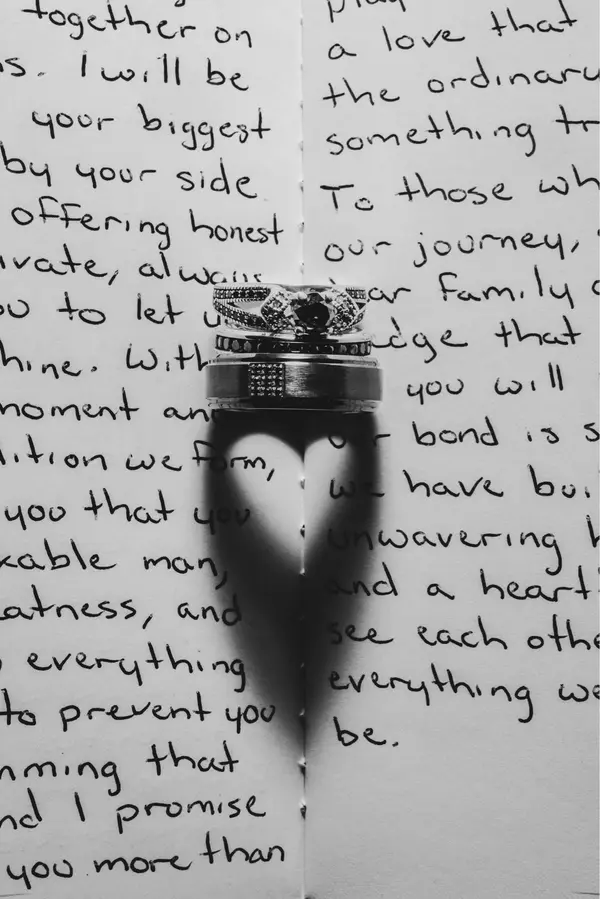 together on
s. I will be
your biggest
by your side
offering honest
vate, always
to let
hine. With
moment an
ition we form,
you that you
kable man,
eatness, and
everything
to prevent you
mming that
nd I promise
you more than
play
a love that
the ordinary
something tr
To those wh
our journey,
ar family
dge that
you will
our bond is s
we have bui
unwavering
and a heart
see each othe
everything we
be.